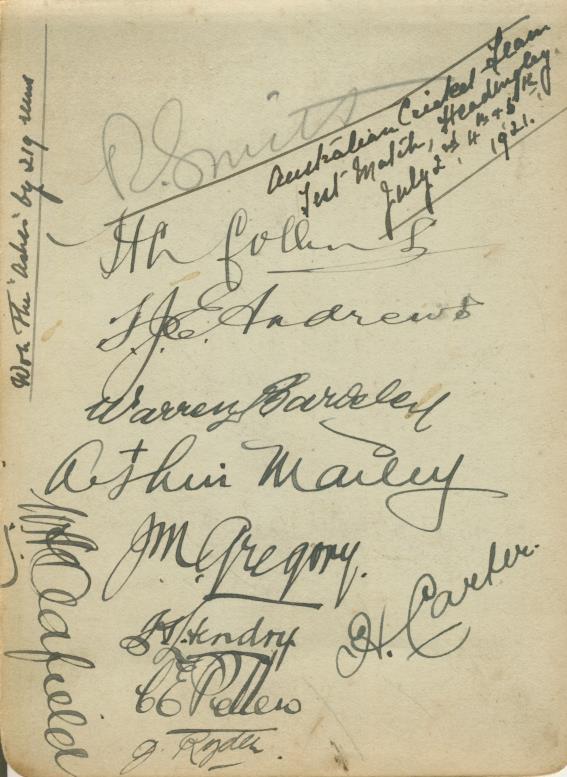 Australian Cricket Team
Test Match, Headingley
July 2nd, 4th & 5th
1921.
Won The "Ashes" by 219 runs
R. Smith
H L Collins
T.J.E. Andrews
Warren Bardsley
Arthur Mailey
J.M. Gregory.
H. Carter.
H L Hendry
C E Pellew
J. Ryder.
W A Oldfield